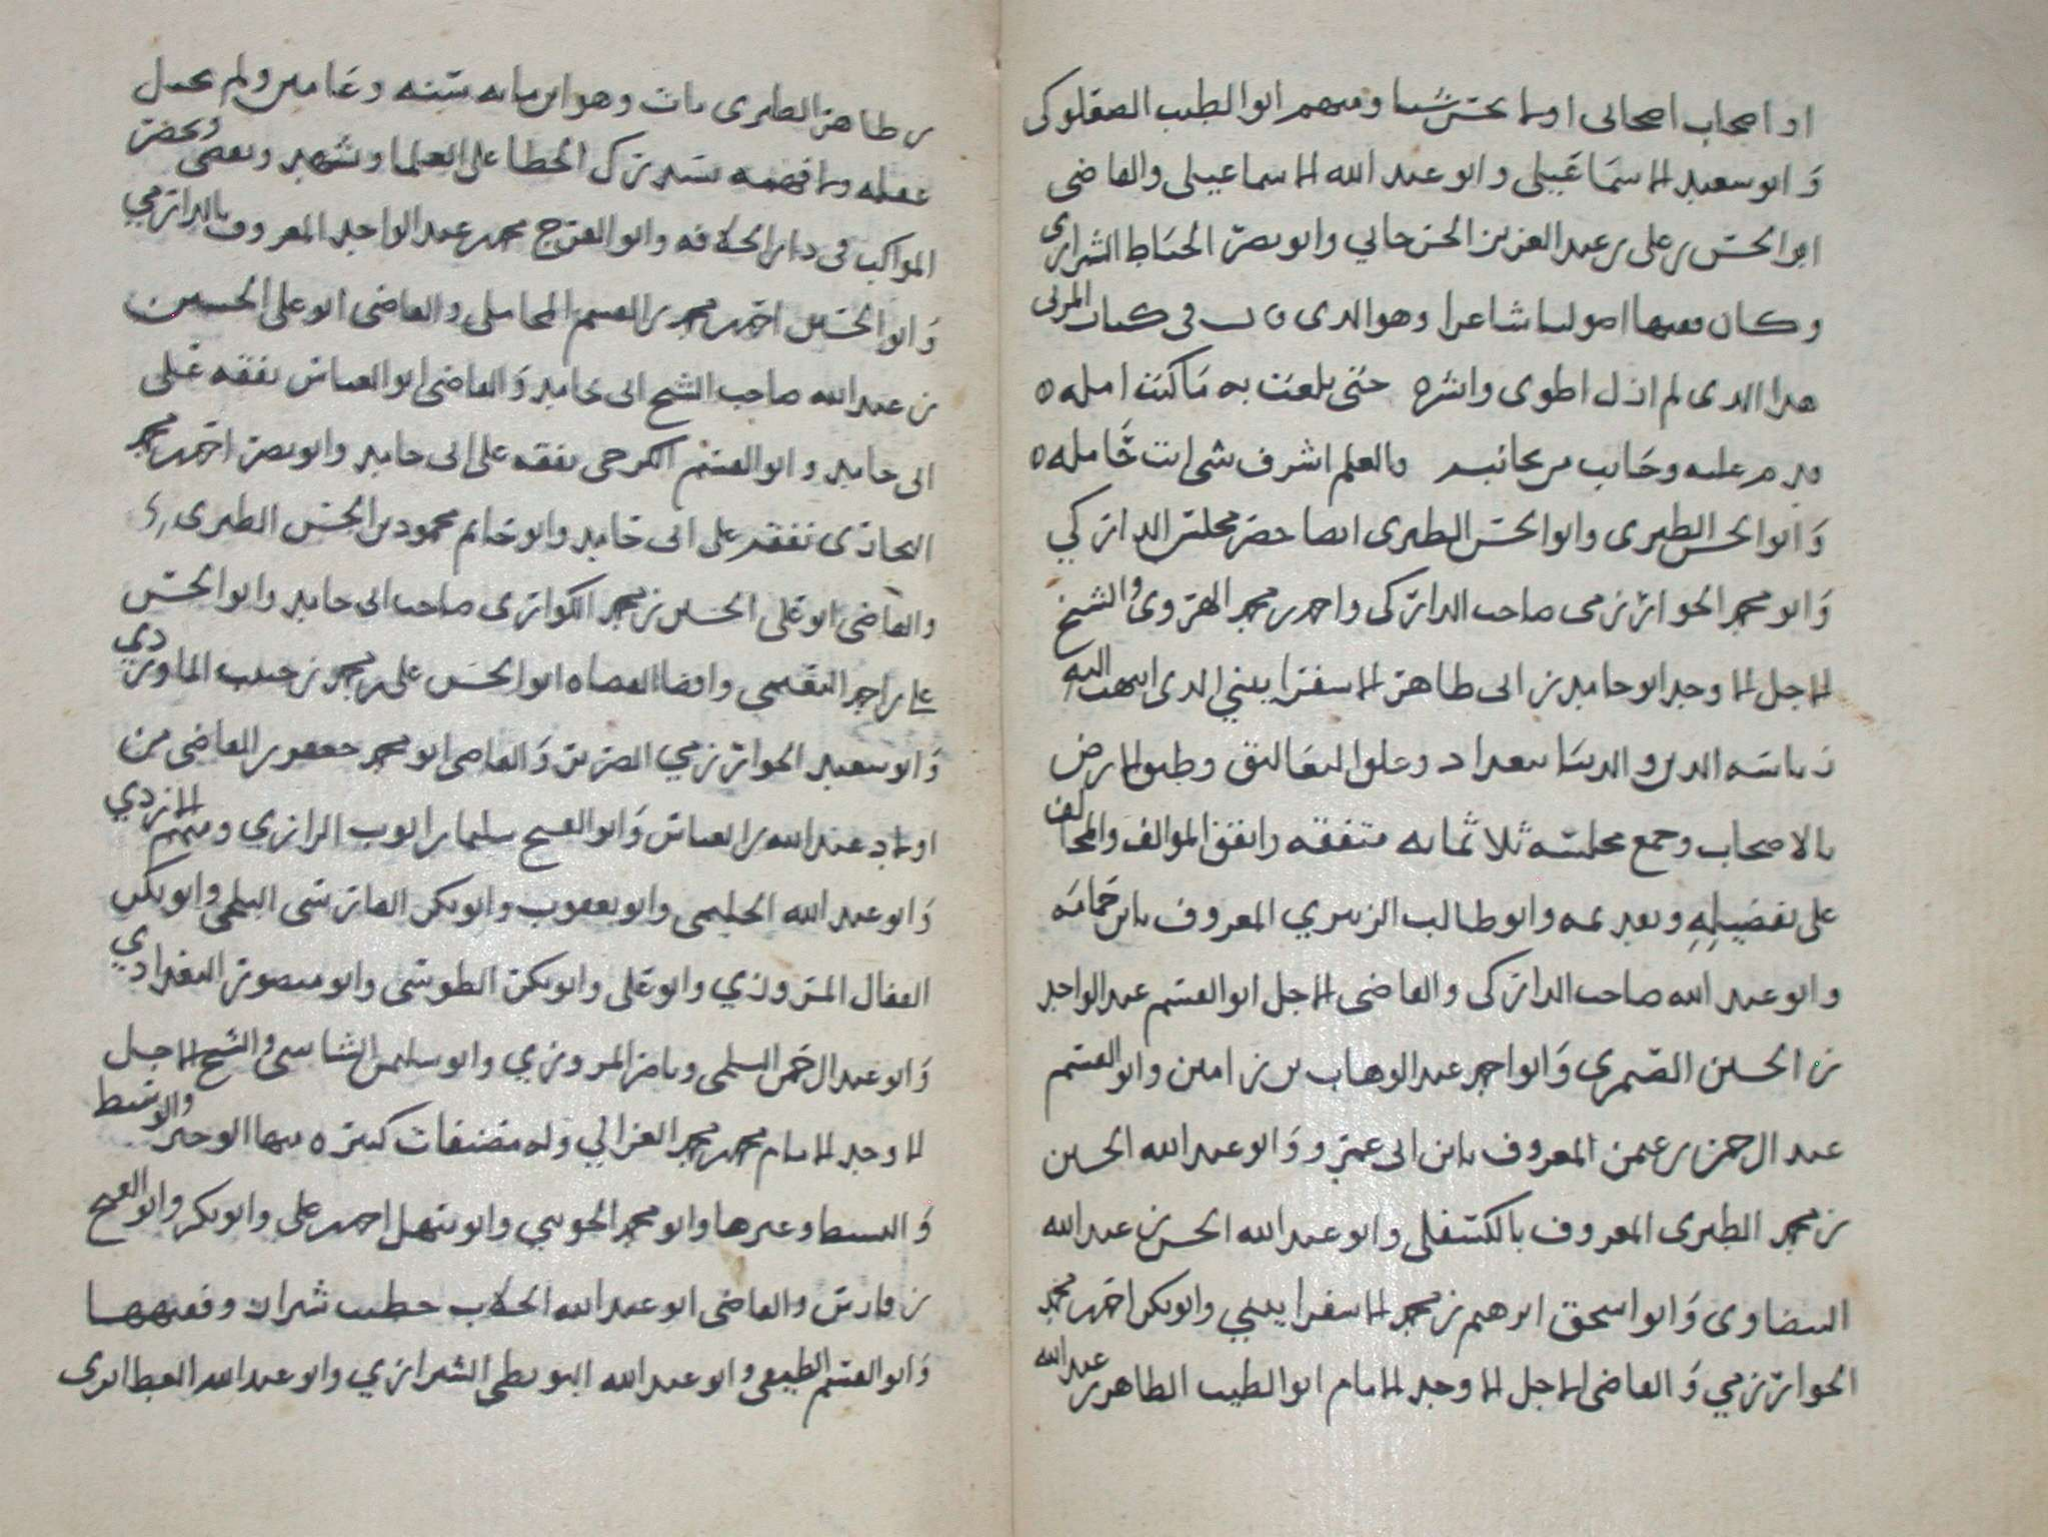 او اصحاب اصحابى اولا نحسن شيا ومنهم ابو الطيب الصعلوكى
وَابو سعيد الاسماعيلى وابو عبد الله الاسماعيلى والقاضى
ابو الحسن بن على بن عبد العزيز الجرجاني وابو نصر الحناط الشيرازى
وكان فقيها اصوليا شاعرا وهو الذى فى كتاب المزنى
هذا الذى لم ازل اطوى وانشره حتى بلغت به ما كنت امله
فدم عليه وجانب من يجانبه فالعلم اشرف شى انت حامله
وَابو الحسن الطبرى وابو الحسن الطبرى ايضا حضر مجلس الداركي
وَابو محمد الخوارزمى صاحب الداركى واحمد بن محمد الهروى والشيخ
الاجل الاوحد ابو حامد بن ابى طاهر الاسفرايينى الذى انتهت اليه
رياسه الدين والدنيا ببغداد وعلق التعاليق وطبق الارض
بالاصحاب وجمع مجلسه ثلاثمايه متفقه واتفق الموالف والمخالف
على تفضيله وتقديمه وابو طالب الزهري المعروف بابن حمامه
وابو عبد الله صاحب الداركى والقاضى الاجل ابو القسم عبد الواحد
بن الحسين الصيمرى وَابو احمد عبد الوهاب بن امين وابو القسم
عبد الرحمن بن عمر المعروف بابن ابى عمرو وَابو عبد الله الحسين
بن محمد الطبرى المعروف بالكشفلى وابو عبد الله الحسين بن عبد الله
البيضاوى وَابو اسحق ابرهيم بن محمد الاسفرايينى وابو بكر احمد بن محمد
الخوارزمي وَالقاضى الاجل الاوحد الامام ابو الطيب الطاهر بن عبد الله
بن طاهر الطبرى مات وهو ابن مايه سنه وعامين ولم يختل
عقله ولا فهمه يستدرك الخطا على العلما ويشهد ويقضى ويحضر
المواكب فى دار الخلافه وابو الفرج محمد بن عبد الواحد المعروف بالدارمي
وَابو الحسن احمد بن محمد بن القسم المحاملى والقاضى ابو على الحسين
بن عبد الله صاحب الشيخ ابى حامد وَالقاضى ابو العباس تفقه على
ابى حامد وابو القسم الكرخى تفقه على ابى حامد وابو نصر احمد بن محمد
البخارى تفقه على ابى حامد وابو حاتم محمود بن الحسن الطبرى
والقاضى ابو على الحسين بن محمد صاحب ابى حامد وابو الحسن
على بن احمد النعيمى واقضا القضاه ابو الحسن على بن محمد بن حبيب الماوردي
وَابو سعيد الخوارزمي الضرير وَالقاضى ابو محمد جعفر القاضى من
اولاد عبد الله بن العباس وَابو الفتح سليم بن ايوب الرازي ومنهم الازدي
وَابو عبد الله الحليمى وابو يعقوب وابو بكر الفارسى البلخى وابو بكر
القفال المروزي وابو على وابو بكر الطوسى وابو منصور البغدادي
وَابو عبد الرحمن السلمى وناصر المروزي وابو سليمن الشاسى والشيخ الاجل
الاوحد الامام محمد بن محمد الغزالي وله مصنفات كثيره منها الوجيز والوسيط
وَالبسيط وغيرها وابو محمد الجوينى وابو سهل احمد بن على وابو بكر وابو الفتح
بن فارس والقاضى ابو عبد الله الجلاب خطيب شيراز وفقيهها
وَابو القسم وابو عبد الله البويطى الشيرازي وابو عبد الله